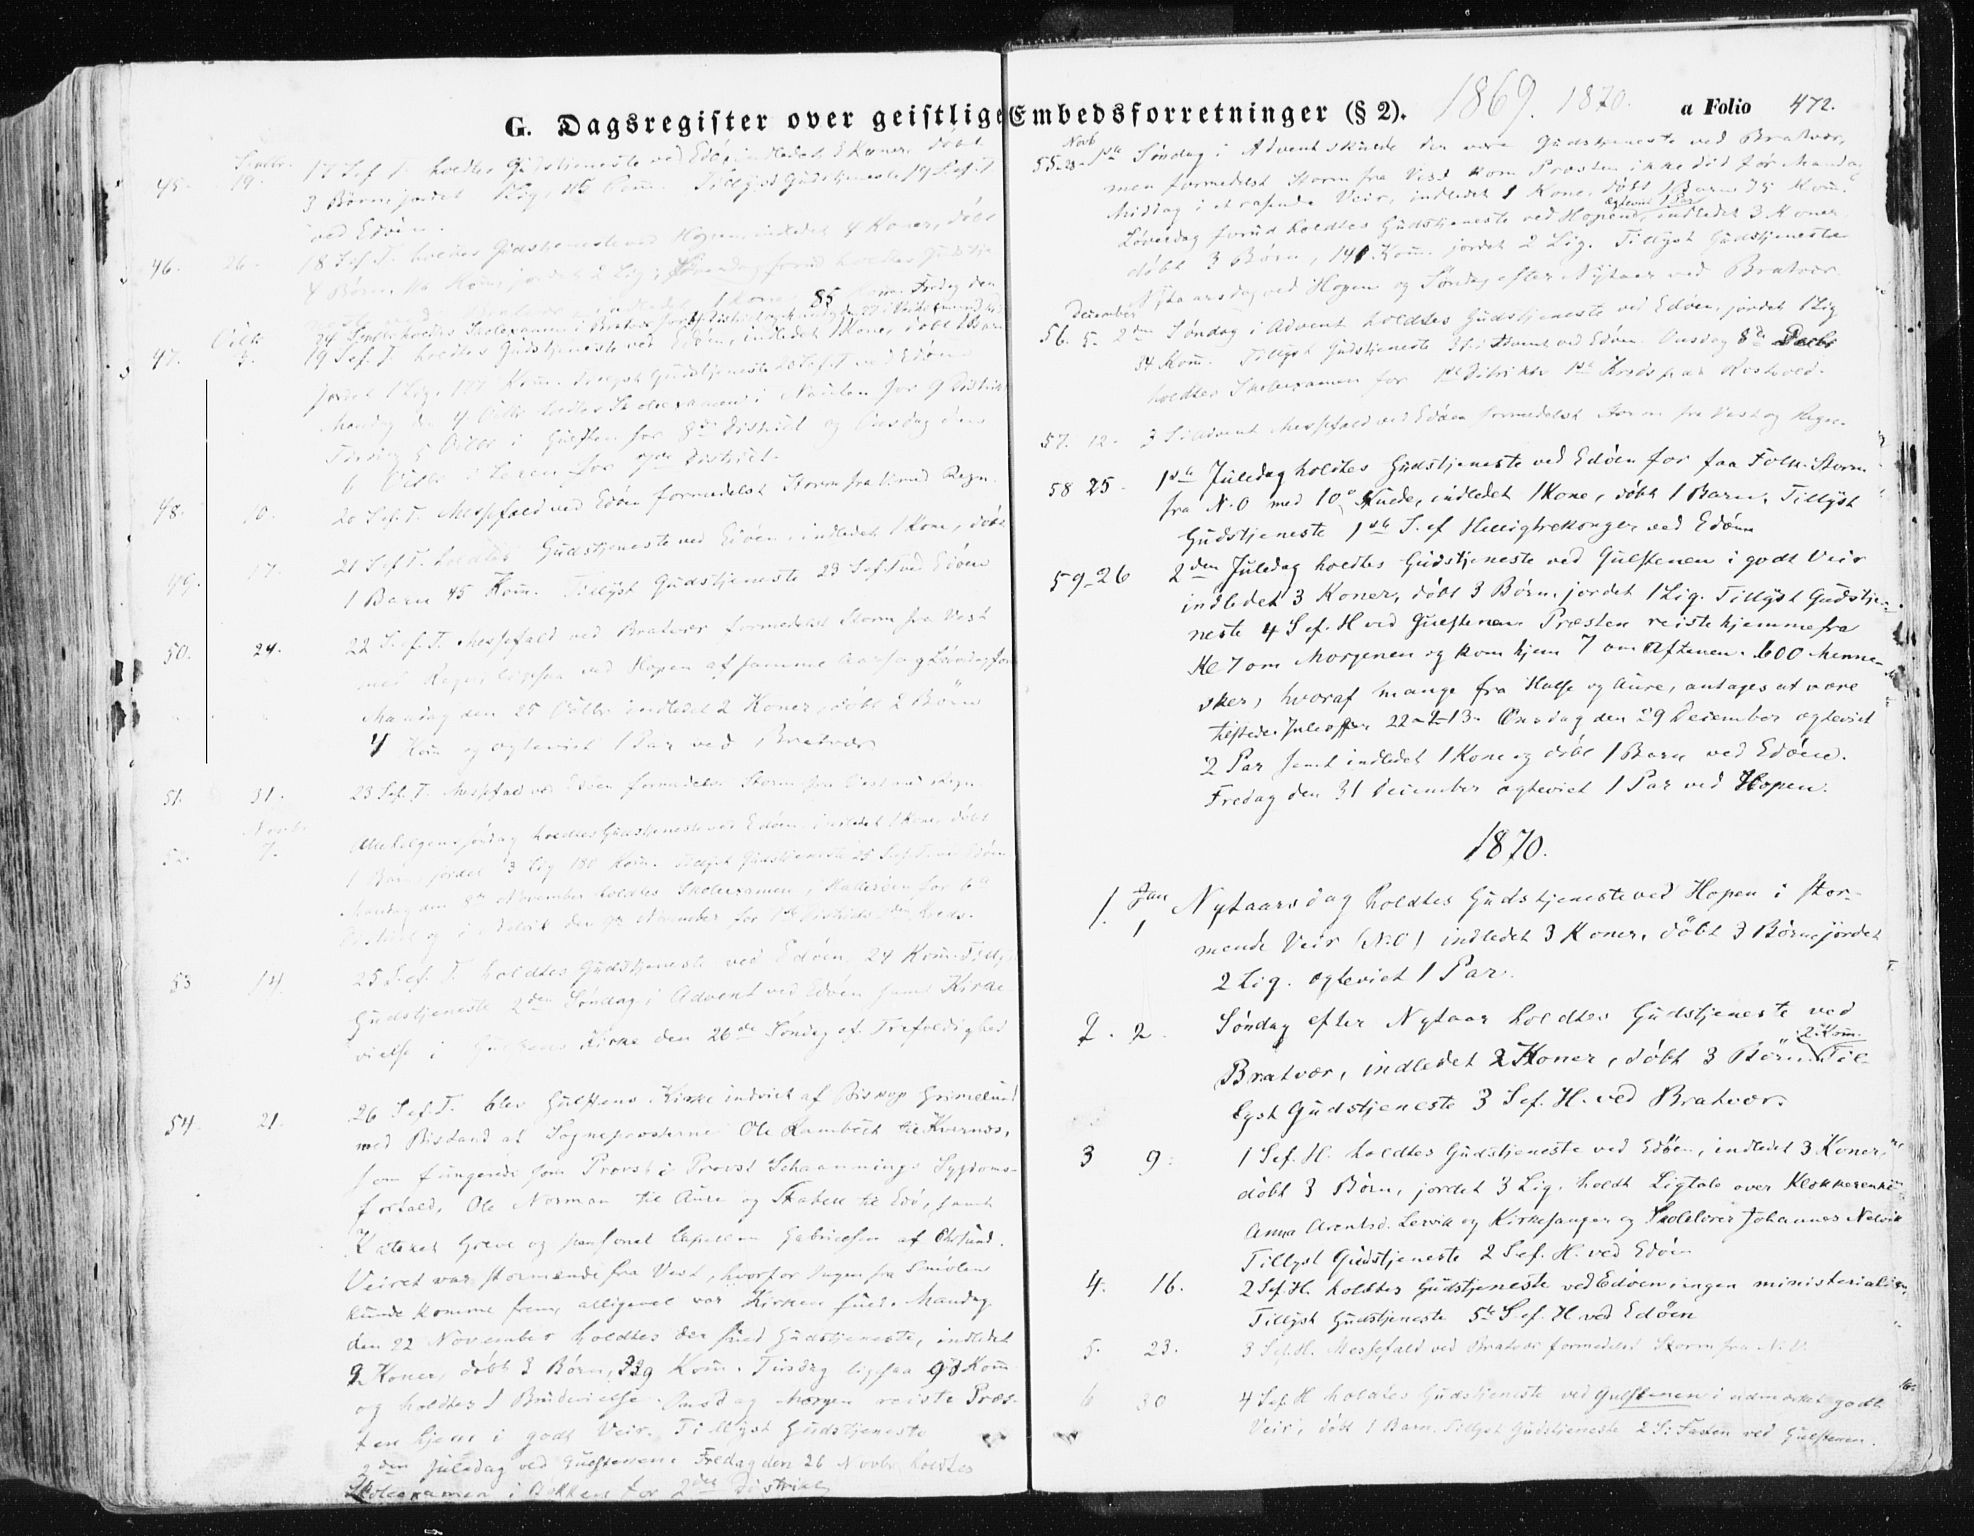 G. Dagsregister over geistlige Embedsforretninger (§ 2). 1869. 1870. a Folio 472.
45. 19. 17 S.ef.T. holdtes Gudstjeneste ved Edöen indledet Koner, döbt
3 Börn, jordet Lig, Kom̅. Tillyst Gudstjeneste 19 S.ef.T
ved Edöen.
46. 26. 18 S.ef.T. holdtes Gudstjeneste ved Hopen, indledet 4 Koner, döbt
4 Börn, Kom̅, jordet 2 Lig, Löverdag forud holdtes Gudstje
indledet 1 Kone, 85 Kom̅. Fredag den
24 holdtes Skoleexamen i
47. Octb. 3. 19 S.ef.T. holdtes Gudstjeneste ved Edöen, indledet 1 Kone, döbt 1 Barn
jordet 1 Lig, Kom̅. Tillyst Gudstjeneste ved Edöen
Mandag den 4 Octbr holdtes Skoleexamen i for 9 District
Tirsdag 5 Octbr i Gulsten for 8de District og Onsdag den
6 Octbr i for 7de District.
48. 10. 20 S.ef.T. Messefald ved Edöen formedelst Storm fra med Regn.
49. 17. 21 S.ef.T. holdtes Gudstjeneste ved Edöen, indledet 1 Kone, döbt
1 Barn 45 Kom̅. Tillyst Gudstjeneste 23 S.ef.T ved Edöen
50. 24. 22 S.ef.T. Messefald ved Bratvær formedelst Storm fra Vest
med Regn, ligesaa ved Hopen af samme Aarsag Löverdag for
Mandag den 25 Octbr indledet 2 Koner, döbt 2 Börn
4 Kom̅ og ægteviet 1 Par ved Bratvær
51. 31. 23 S.ef.T. Messefald ved Edöen formedelst Storm fra Vest med Regn
52. Novbr 7. Allehelgenssöndag holdtes Gudstjeneste ved Edöen, indledet 1 Kone, döbt
1 Barn, jordet 3 Lig 180 Kom̅. Tillyst Gudstjeneste 25 S.ef.T. ved Edöen
Mandag den 8de November holdtes Skoleexamen i for 6te
District og i den 9de November for 1ste Districts 2den Kreds.
53 14. 25 S.ef.T. holdtes Gudstjeneste ved Edöen, 24 Kom̅. Tillyst
Gudstjeneste 2den Söndag i Advent ved Edöen samt Kirke
vielse i Gulstens Kirke den 26de Söndag ef. Trefoldighed
54. 21. 26 S.ef.T. blev Gulstens Kirke indviet af Biskop Grimelund
med Bistand af Sognepræsterne Ole Lambech til Kvernæs,
som fungerede som Provst i Provst Schaannings Sygdoms-
forfald, Ole Norman til Aure og Skabell til Edö, samt
Kateket Greve og personel Capellan Gabrielsen af Chrsund.
Veiret var stormende fra Vest, hvorfor Ingen fra Smölen
kunde komme frem, alligevel var Kirken fuld. Mandag
den 22 November holdtes der fuld Gudstjeneste, indledet
9 Koner, döbt 3 Börn, 339 Kom̅. Tirsdag ligesaa 98 Kom̅
og holdtes 1 Brudevielse. Onsdag Morgen reiste Præs-
ten hjem i godt Veir. Tillyst Gudstjeneste
2den Juledag ved Gulstenen. Fredag den 26 Novbr holdtes
Skoleexamen i for 2den District
55. Novb 28. 1ste Söndag i Advent skulde der være Gudstjeneste ved Bratvær,
men formedelst Storm fra Vest kom Præsten ikke did för Mandag
Middag i et rasende Veir, indledet 1 Kone, döbt 1 Barn 75 Kom̅.
ægteviet 1 Par
Löverdag forud holdtes Gudstjeneste ved Hopen, indledet 3 Koner
döbt 3 Börn, 141 Kom̅. jordet 2 Lig. Tillyst Gudstjeneste
Nytaarsdag ved Hopen og Söndag efter Nytaar ved Bratvær.
December
56. 5. 2den Söndag i Advent holdtes Gudstjeneste ved Edöen, jordet 1 Lig
84 Kom̅. Tillyst Gudstjeneste 3 S. i Advent ved Edöen. Onsdag 8de Decbr
holdtes Skoleexamen for 1ste District 1ste Kreds paa
57. 12. 3 S. i Advent Messefald ved Edöen formedelst Storm fra Vest og Regn.
58 25. 1ste Juledag holdtes Gudstjeneste ved Edöen for faa Folk. Storm
fra N.O med 10° Kulde, indledet 1 Kone, döbt 1 Barn. Tillyst
Gudstjeneste 1ste S. ef Helligtrekonger ved Edöen
59 26 2den Juledag holdtes Gudstjeneste ved Gulstenen i godt Veir
indledet 3 Koner, döbt 3 Börn, jordet 1 Lig. Tillyst Gudstje-
neste 4 S.ef.H ved Gulstenen. Præsten reiste hjemmefra
Kl 7 om Morgenen og kom hjem 7 om Aftenen. 600 Menne-
sker, hvoraf mange fra Halse og Aure, antages at være
tilstede. Juleoffer 22-2-13. Onsdag den 29 December ægteviet
2 Par samt indledet 1 Kone og döbt 1 Barn ved Edöen.
Fredag den 31 December ægteviet 1 Par ved Hopen.
1870.
1. Jan 1 Nytaarsdag holdtes Gudstjeneste ved Hopen i stor-
mende Veir (N.O) indledet 3 Koner, döbt 3 Börn, jordet
2 Lig. ægteviet 1 Par.
2. 2. Söndag efter Nytaar holdtes Gudstjeneste ved
2 Kom̅.
Bratvær, indledet 2 Koner, döbt 3 Börn. Til-
lyst Gudstjeneste 3 S.ef.H. ved Bratvær.
3 9. 1 S.ef.H. holdtes Gudstjeneste ved Edöen, indledet 3 Koner,
döbt 3 Börn, jordet 3 Lig. holdt Ligtale over Klokkerenke
Anna Arentsd. Lervik og Kirkesanger og Skolelærer Johannes Nelvik
Tillyst Gudstjeneste 2 S.ef.H. ved Edöen
4. 16. 2 S.ef.H. holdtes Gudstjeneste ved Edöen ingen ministerialier,
Tillyst Gudstjeneste 5te S.ef.H ved Edöen
5. 23. 3 S.ef.H. Messefald ved Bratvær formedelst Storm fra N.V.
6 30 4 S.ef.H holdtes Gudstjeneste ved Gulstenen i udmærket godt
Veir, döbt 1 Barn. Tillyst Gudstjeneste 2 S. i Fasten ved Gulstenen.